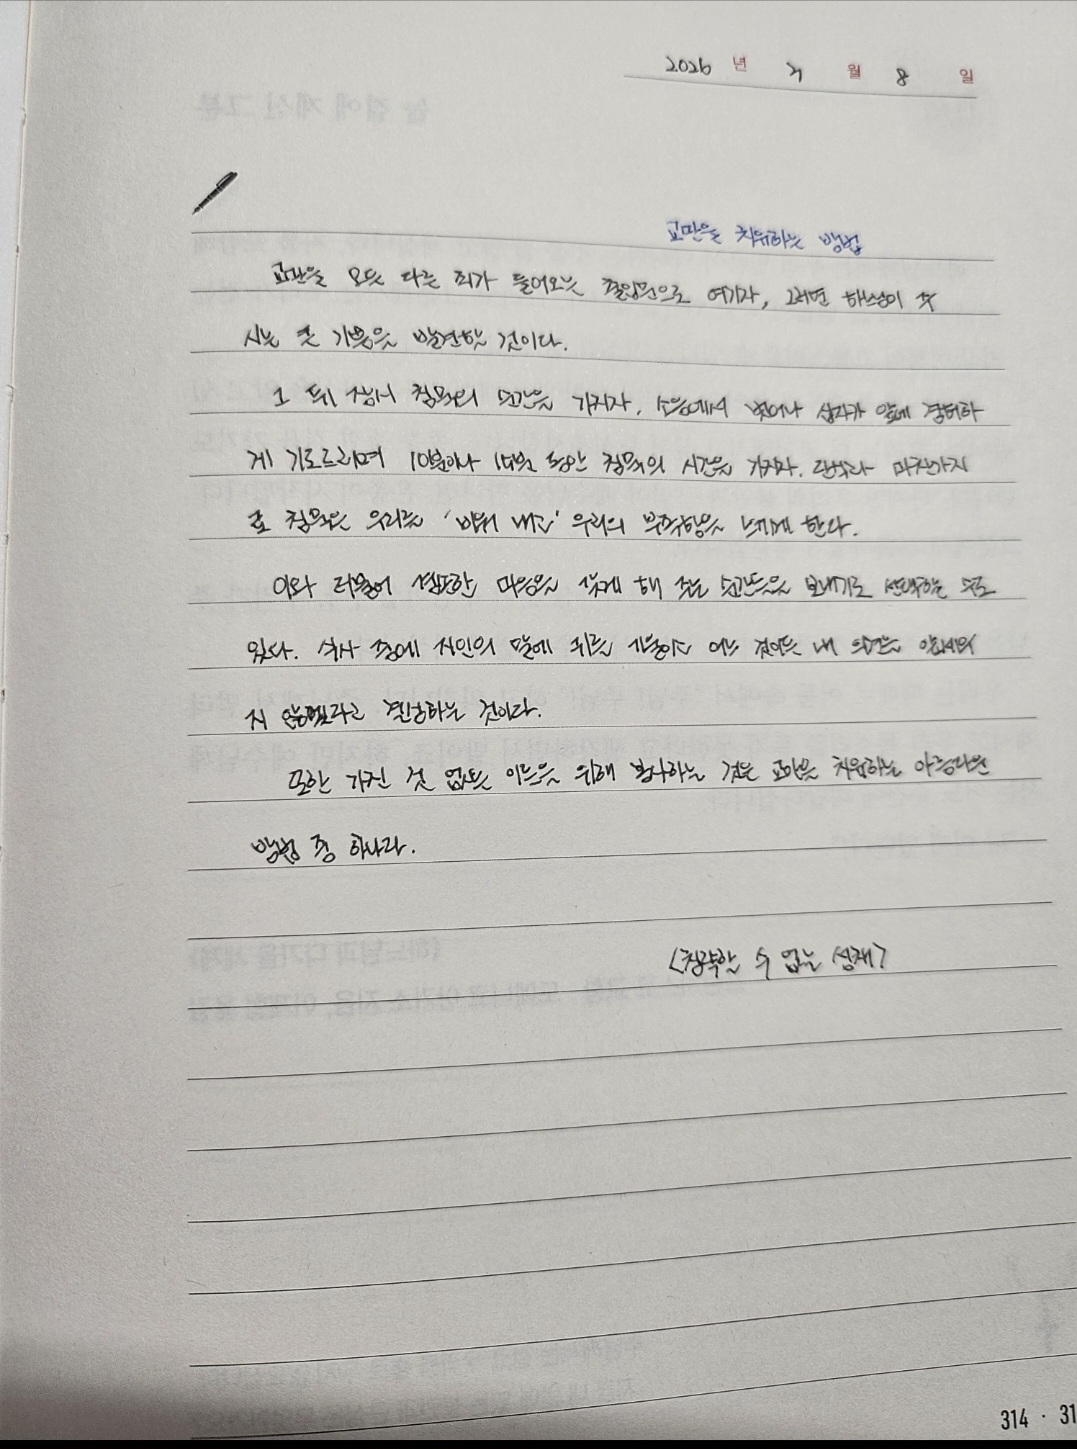 2026 년 4 월 8 일
교만을 치유하는 방법
교만을 모든 다른 죄가 들어오는 출입문으로 여기자, 그러면 하느님이 주
시는 큰 기쁨을 발견할 것이다.
그 뒤 잠시 침묵의 순간을 가지자. 소음에서 벗어나 십자가 앞에 경허하
게 기도드리며 10분이나 15분 동안 침묵의 시간을 가지자. 단식과 마찬가지
로 침묵은 우리를 '비워 내고' 우리의 부족함을 느끼게 한다.
이와 더불어 겸손한 마음을 갖게 해 주는 순간들을 보내기로 선택하는 수도
있다. 식사 중에 지인의 말에 귀를 기울이는 어느 것이든 내 의견을 앞세우
지 않겠다고 결심하는 것이다.
또한 가진 것 없는 이들을 위해 봉사하는 것은 교만을 치유하는 아름다운
방법 중 하나다.
<침략할 수 없는 성채>
314 · 31